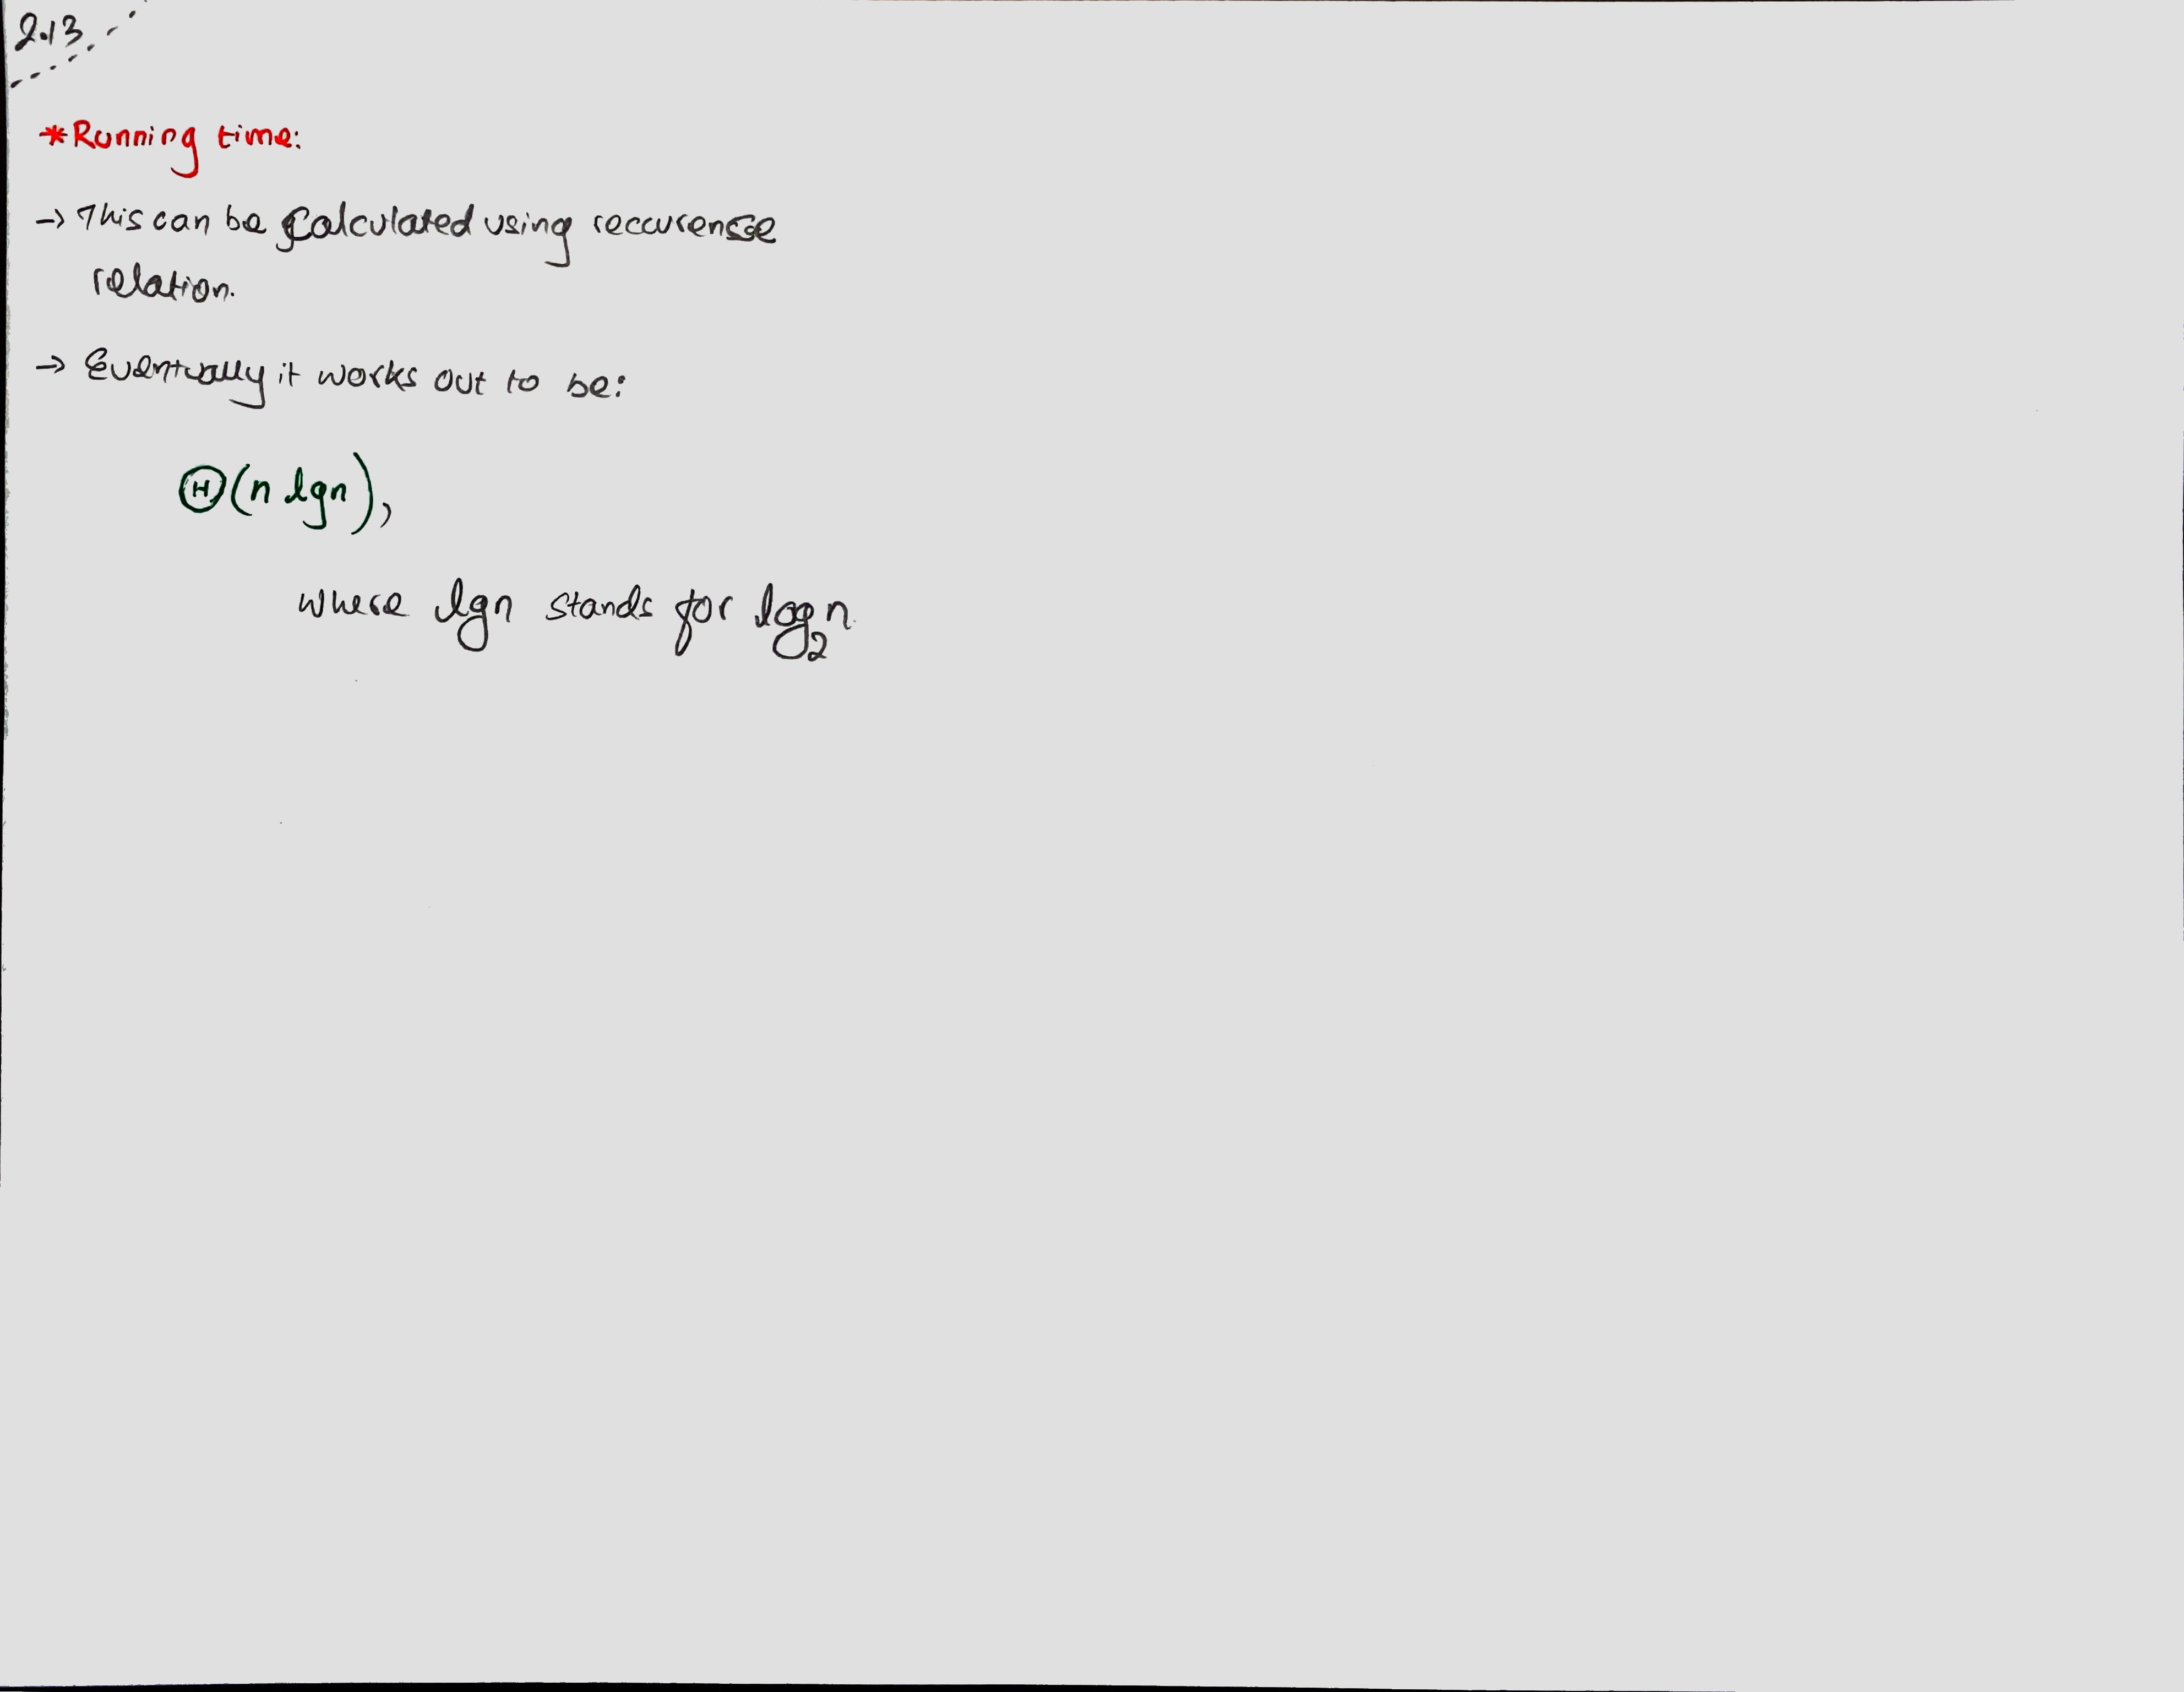 2.13
*Running time:
→ This can be Calculated using reccurense
relation.
→ Eventually it works out to be:
Θ(n lgn),
where lgn stands for log₂n.